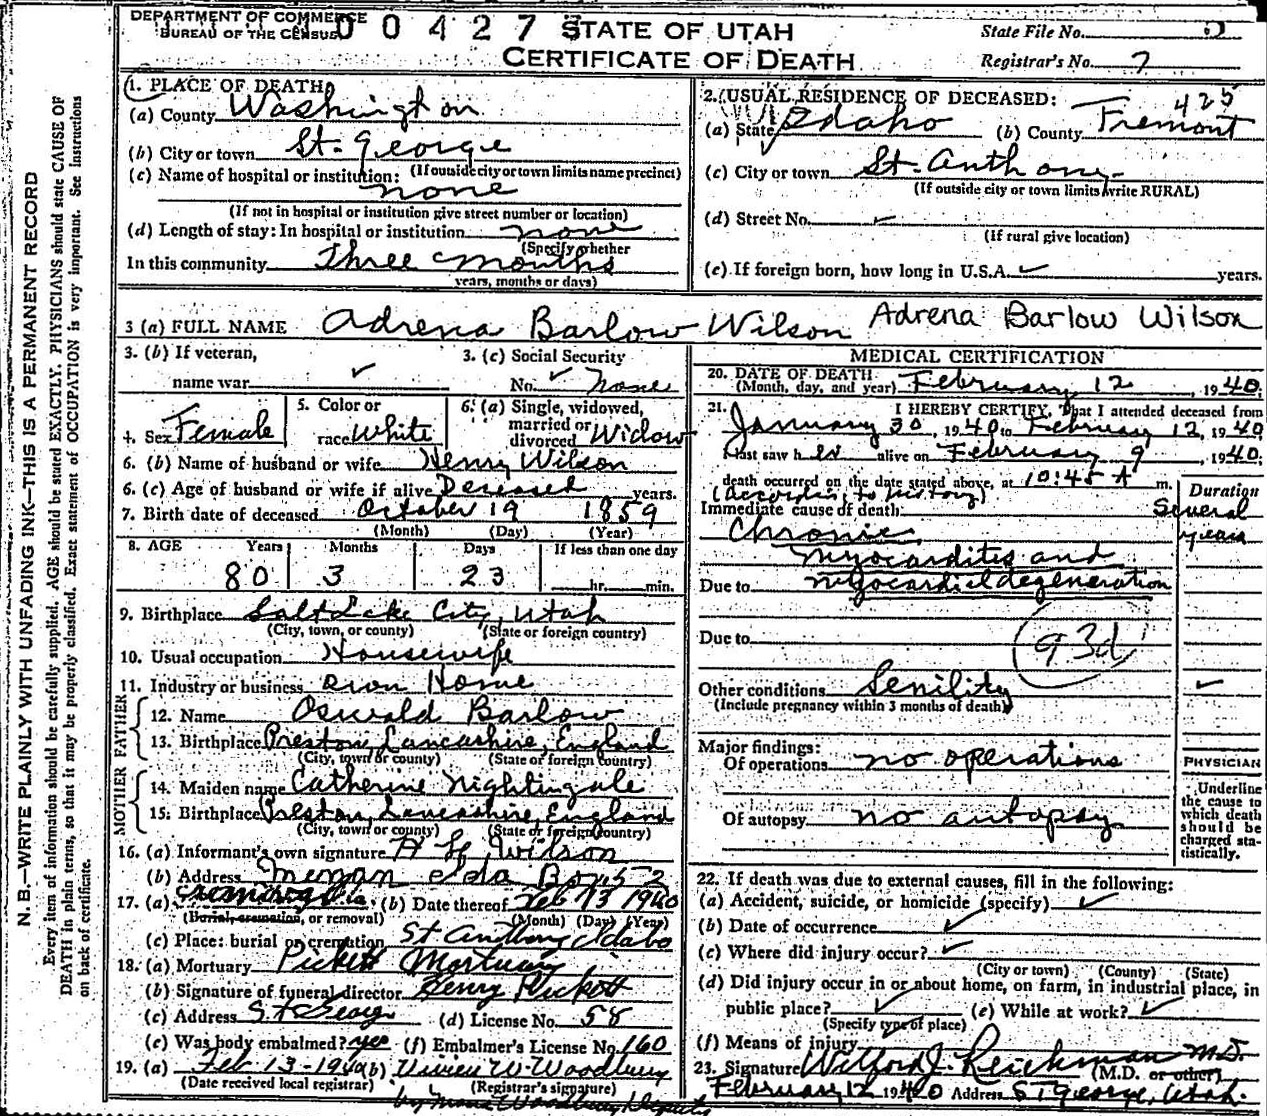 DEPARTMENT OF COMMERCE
BUREAU OF THE CENSUS
0 0 4 2 7
STATE OF UTAH
CERTIFICATE OF DEATH
State File No.
Registrar's No. 7
N. B.—WRITE PLAINLY WITH UNFADING INK—THIS IS A PERMANENT RECORD
Every item of information should be carefully supplied. AGE should be stated EXACTLY. PHYSICIANS should state CAUSE OF
DEATH in plain terms, so that it may be properly classified. Exact statement of OCCUPATION is very important. See Instructions
on back of certificate.
1. PLACE OF DEATH
(a) County Washington
(b) City or town St. George
(If outside city or town limits name precinct)
(c) Name of hospital or institution:
none
(If not in hospital or institution give street number or location)
(d) Length of stay: In hospital or institution none
(Specify whether
In this community Three months
years, months or days)
2. (USUAL RESIDENCE OF DECEASED:
425
(a) State Idaho (b) County Fremont
(c) City or town St. Anthony
(If outside city or town limits write RURAL)
(d) Street No. ✓
(If rural give location)
(e) If foreign born, how long in U.S.A. ✓ years.
3 (a) FULL NAME Adrena Barlow Wilson Adrena Barlow Wilson
3. (b) If veteran,
name war ✓
3. (c) Social Security
No. ✓ none
4. Sex Female
5. Color or
race White
6. (a) Single, widowed,
married or
divorced Widow
6. (b) Name of husband or wife Henry Wilson
6. (c) Age of husband or wife if alive Deceased years.
7. Birth date of deceased October 19 1859
(Month) (Day) (Year)
8. AGE Years Months Days If less than one day
80 3 23 hr. min.
9. Birthplace Salt Lake City, Utah
(City, town, or county) (State or foreign country)
10. Usual occupation Housewife
11. Industry or business own Home
FATHER
12. Name Oswald Barlow
13. Birthplace Preston, Lancashire, England
(City, town or county) (State or foreign country)
MOTHER
14. Maiden name Catherine Nightingale
15. Birthplace Preston, Lancashire, England
(City, town or county) (State or foreign country)
16. (a) Informant's own signature Wilson
(b) Address Ida Box 52
17. (a) (b) Date thereof Feb 13 1940
(Burial, cremation, or removal) (Month) (Day) (Year)
(c) Place: burial or cremation St Anthony Idaho
18. (a) Mortuary Pickett Mortuary
(b) Signature of funeral director Henry Pickett
(c) Address St George (d) License No. 58
(e) Was body embalmed? yes (f) Embalmer's License No. 160
19. (a) Feb 13-1940 (b) Vivien W. Woodbury
(Date received local registrar) (Registrar's signature)
by Woodbury Deputy
MEDICAL CERTIFICATION
20. DATE OF DEATH
(Month, day, and year) February 12, 1940.
21. I HEREBY CERTIFY, that I attended deceased from
January 30, 1940 to February 12, 1940
I last saw her alive on February 9, 1940.
death occurred on the date stated above, at 10:45 A m.
(According to history)
Duration
Immediate cause of death: Several
Chronic years
myocardites and
Due to myocardial degeneration
Due to
93d
Other conditions Senility ✓
(Include pregnancy within 3 months of death)
Major findings:
Of operations no operations
Of autopsy no autopsy
PHYSICIAN
Underline
the cause to
which death
should be
charged sta-
tistically.
22. If death was due to external causes, fill in the following:
(a) Accident, suicide, or homicide (specify) ✓
(b) Date of occurrence ✓
(c) Where did injury occur? ✓
(City or town) (County) (State)
(d) Did injury occur in or about home, on farm, in industrial place, in
public place? ✓ (e) While at work? ✓
(Specify type of place)
(f) Means of injury
23. Signature Wilford J. Reichman M.D.
(M.D. or other)
February 12 1940 Address St George, Utah.